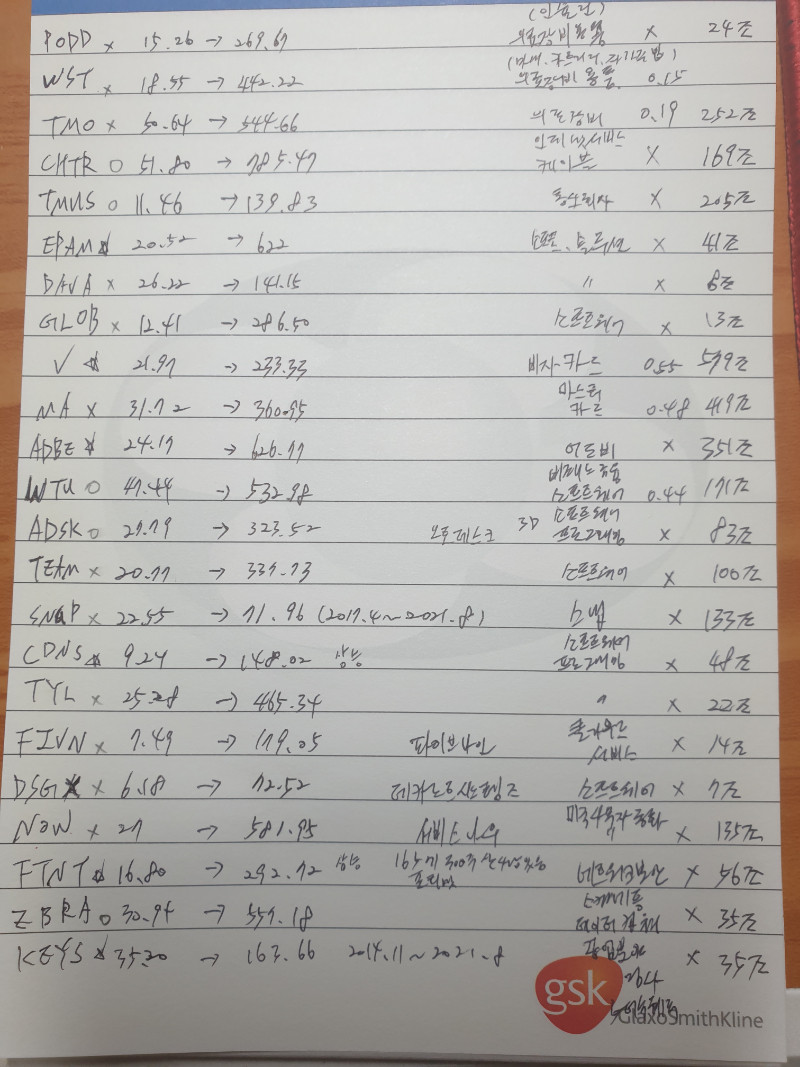 (인슐린)
PODD x 15.26 → 269.67 의료장비용품 x 24조
WST x 18.55 → 442.22 의료장비 용품 0.15
TMO x 50.64 → 544.66 의료장비 0.19 252조
인터넷서비스
CHTR o 51.80 → 785.47 케이블 x 169조
TMUS o 11.46 → 139.83 통신회사 x 205조
EPAM 20.52 → 622 소프트, 솔루션 x 41조
DAVA x 26.22 → 141.15 〃 x 8조
GLOB x 12.41 → 286.50 소프트웨어 x 13조
V 21.97 → 233.33 비자카드 0.55 599조
마스터
MA x 31.72 → 360.95 카드 0.48 419조
ADBE 24.17 → 626.77 어도비 x 351조
INTU o 47.44 → 532.98 소프트웨어 0.44 171조
소프트웨어
ADSK o 29.79 → 323.52 오토데스크 3D 프로그래밍 x 83조
TEAM x 20.77 → 337.73 소프트웨어 x 100조
SNAP x 22.55 → 71.96 (2017.4~2021.8) 스냅 x 133조
소프트웨어
CDNS 9.24 → 148.02 상승 프로그래밍 x 48조
TYL x 25.28 → 465.34 〃 x 22조
클라우드
FIVN x 7.49 → 179.05 파이브나인 서비스 x 14조
DSG x 6.18 → 72.52 데카르트시스템즈 소프트웨어 x 7조
NOW x 27 → 581.95 서비스나우 x 135조
FTNT 16.80 → 292.72 상승 네트워크보안 x 56조
ZBRA o 30.94 → 557.18 x 35조
KEYS 35.20 → 163.66 2014.11~2021.8 x 35조
gsk
GlaxoSmithKline